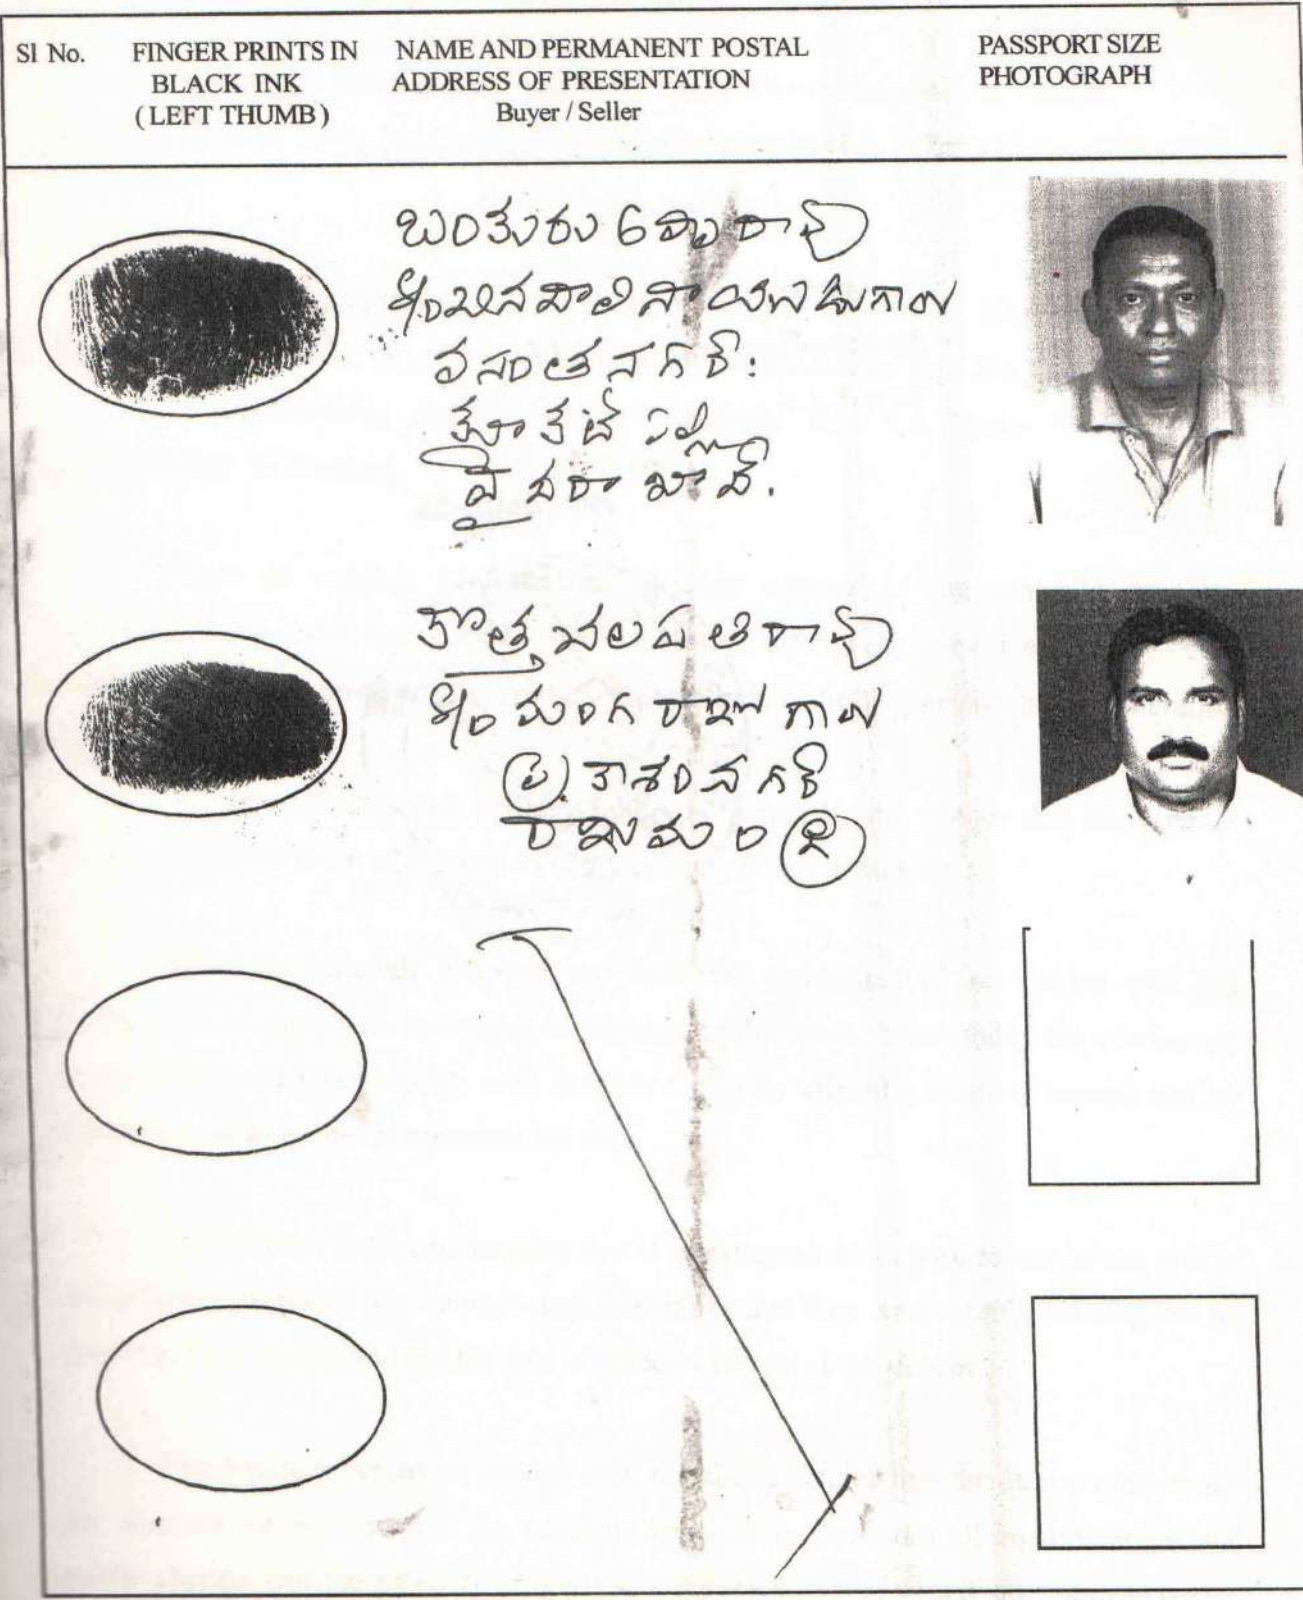 Sl No. FINGER PRINTS IN BLACK INK (LEFT THUMB)
NAME AND PERMANENT POSTAL ADDRESS OF PRESENTATION
Buyer / Seller
PASSPORT SIZE PHOTOGRAPH
బంతురు రావు
S/o నాయుడుగారు
వసంతనగర్:
హైదరాబాద్.
కొత్త చలపతిరావు
S/o మంగరాజు గారు
ప్రకాశంనగర్
రాజమండ్రి